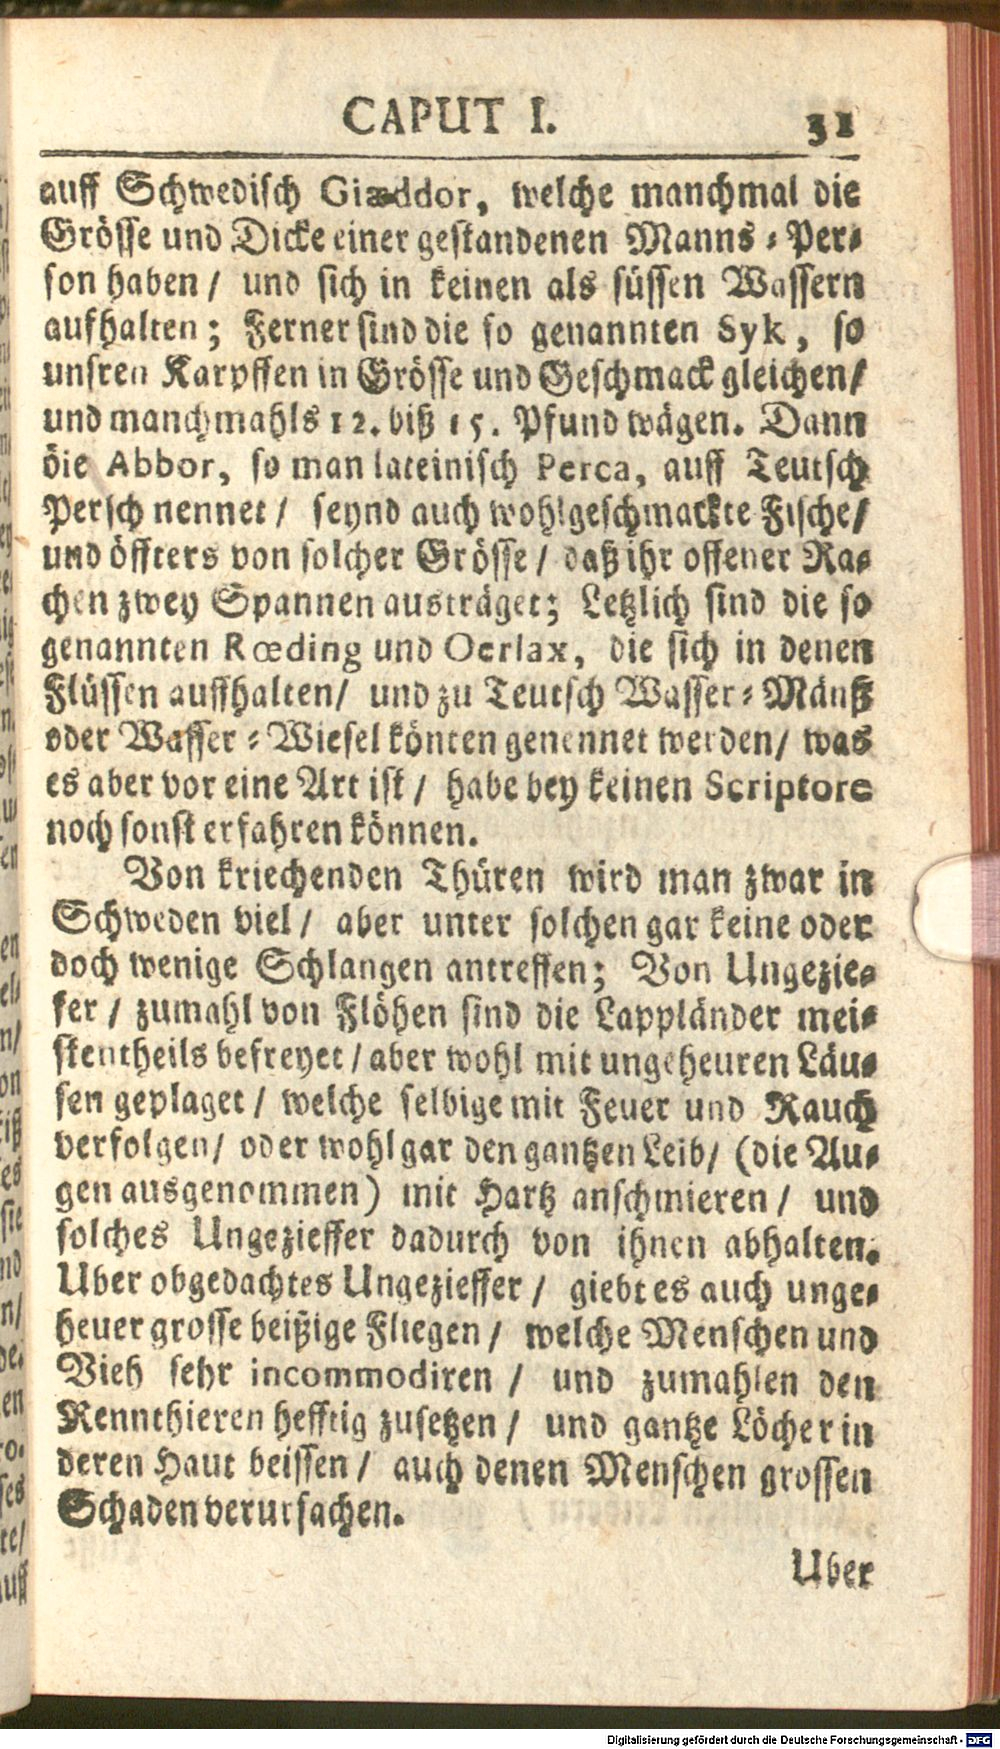 CAPUT I. 31
auff Schwedisch Giæddor, welche manchmal die
Grösse und Dicke einer gestandenen Manns-Per-
son haben/ und sich in keinen als süssen Wassern
aufhalten; Ferner sind die so genannten Syk, so
unsren Karpffen in Grösse und Geschmack gleichen/
und manchmahls 12. biß 15. Pfund wägen. Dann
die Abbor, so man lateinisch Perca, auff Teutsch
Persch nennet/ seynd auch wohlgeschmackte Fische/
und öffters von solcher Grösse/ daß ihr offener Ra-
chen zwey Spannen austräget; Letzlich sind die so
genannten Rœding und Oerlax, die sich in denen
Flüssen auffhalten/ und zu Teutsch Wasser-Mänß
oder Wasser-Wiesel könten genennet werden/ was
es aber vor eine Art ist/ habe bey keinen Scriptore
noch sonst erfahren können.
Von kriechenden Thüren wird man zwar in
Schweden viel/ aber unter solchen gar keine oder
doch wenige Schlangen antreffen; Von Ungezie-
fer/ zumahl von Flöhen sind die Lappländer mei-
stentheils befreyet/ aber wohl mit ungeheuren Läu-
sen geplaget/ welche selbige mit Feuer und Rauch
verfolgen/ oder wohl gar den gantzen Leib/ (die Au-
gen ausgenommen) mit Hartz anschmieren/ und
solches Ungezieffer dadurch von ihnen abhalten.
Uber obgedachtes Ungezieffer/ giebt es auch unge-
heuer grosse beißige Fliegen/ welche Menschen und
Vieh sehr incommodiren/ und zumahlen den
Rennthieren hefftig zusetzen/ und gantze Löcher in
deren Haut beissen/ auch denen Menschen grossen
Schaden verursachen.
Uber
Digitalisierung gefördert durch die Deutsche Forschungsgemeinschaft - DFG